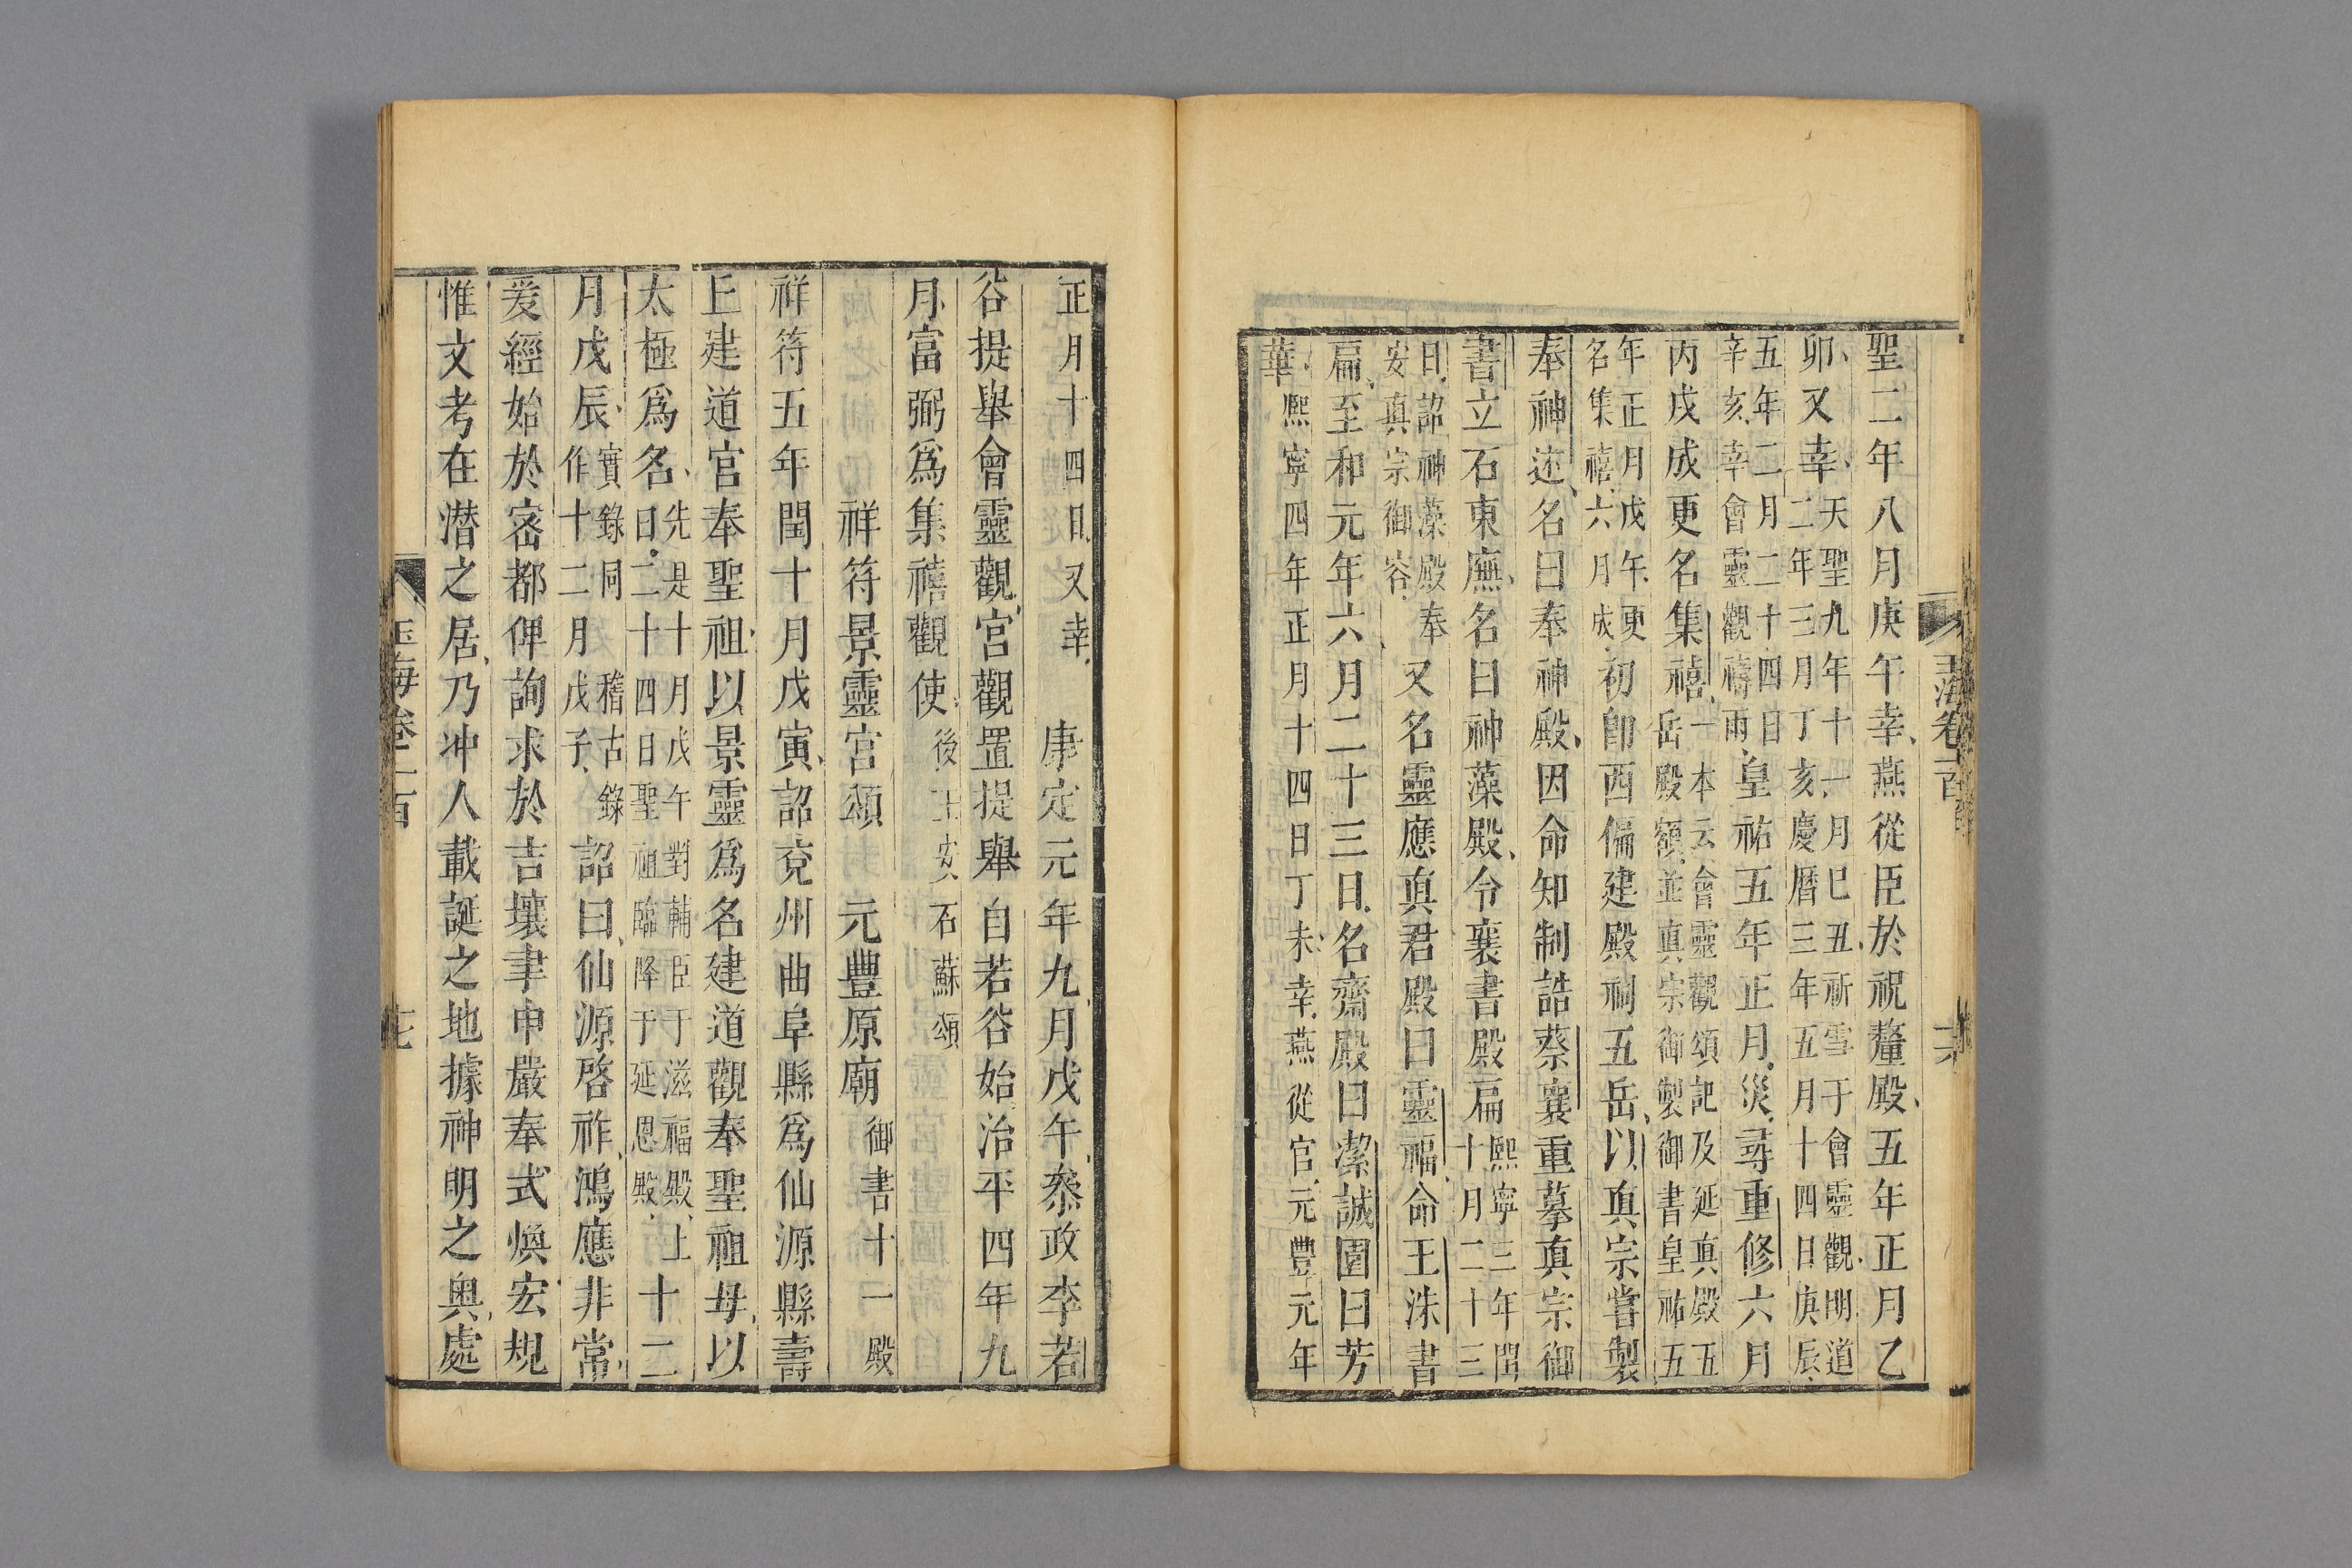 聖二年八月庚午幸燕從臣於祝釐殿五年正月乙
卯又幸天聖九年十一月巳丑祈雪于會靈觀明道二年三月丁亥慶曆三年五月十四日庚辰
五年二月二十四日辛亥幸會靈觀禱雨皇祐五年正月災尋重修六月
丙戌成更名集禧一本云會靈觀頌記及延真殿五岳殿額並真宗御製御書皇祐五
年正月戊午更名集禧六月成初卽西偏建殿祠五岳以真宗嘗製
奉神述名曰奉神殿因命知制誥蔡襄重摹真宗御
書立石東廡名曰神藻殿令襄書殿扁熙寧三年閏十月二十三
日詔神藻殿奉安真宗御容又名靈應真君殿曰靈福命王洙書
扁至和元年六月二十三日名齋殿曰潔誠園曰芳
華熙寧四年正月十四日丁未幸燕從官元豐元年
正月十四日又幸康定元年九月戊午叅政李若
谷提舉會靈觀宮觀置提舉自若谷始治平四年九
月富弼爲集禧觀使後王安石蘇頌
祥符景靈宮頌 元豐原廟 御書十一殿
祥符五年閏十月戊寅詔兗州曲阜縣爲仙源縣壽
丘建道宮奉聖祖以景靈爲名建道觀奉聖祖母以
太極爲名先是十月戊午對輔臣于滋福殿上曰二十四日聖祖臨降于延恩殿十二
月戊辰實錄同稽古錄作十二月戊子詔曰仙源啓祚鴻應非常
爰經始於宻都俾詢求於吉壤聿申嚴奉式煥宏規
惟文考在潜之居乃冲人載誕之地據神明之奥處
玉海卷一百